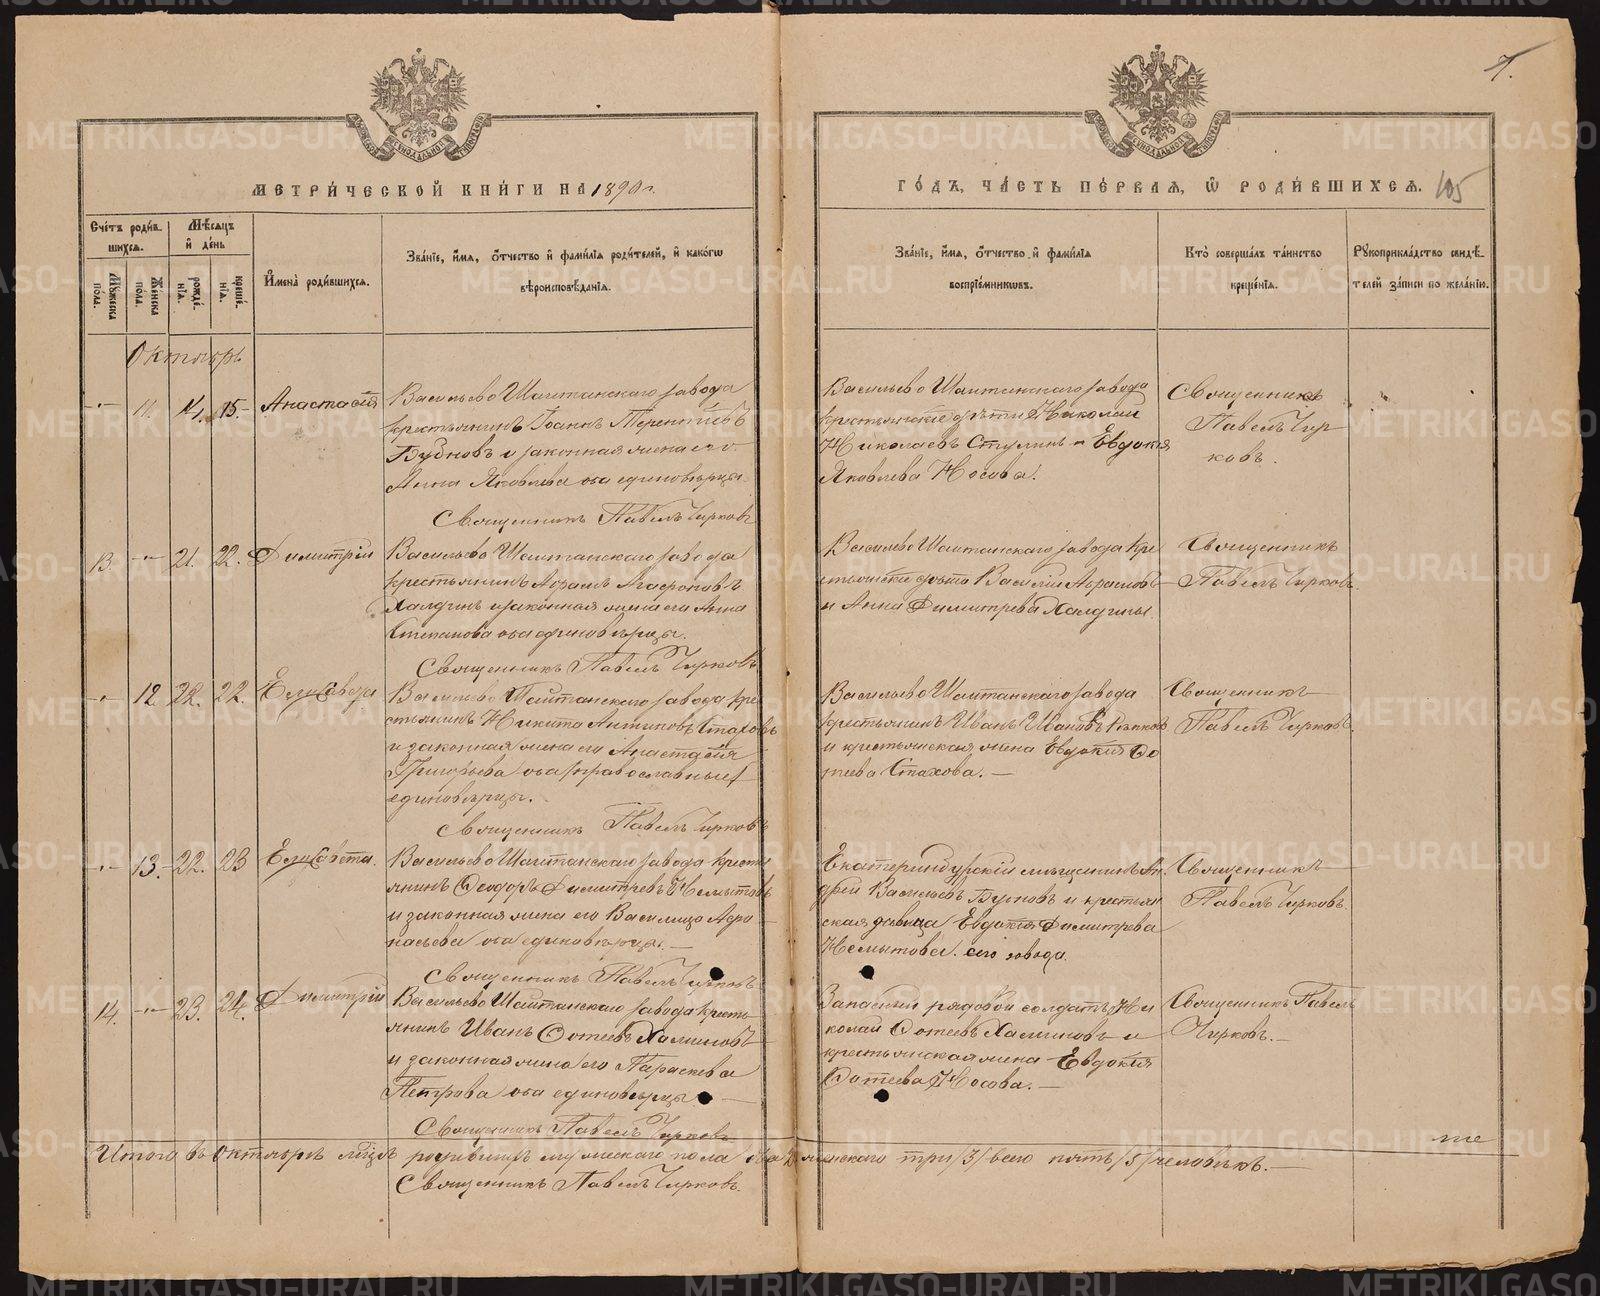 7.
МЕТРИ́ЧЕСКОЙ КНИ́ГИ НА 1890 г.
ГО́ДЪ, ЧА́СТЬ ПЕ́РВАЯ, Ѡ РОДИ́ВШИХСЯ.
105
Сче́тъ роди́в-
шихся.
Мѣ́сяцъ
и҆ де́нь
Му́жеска по́ла.
Же́нска по́ла.
рожде́нїѧ.
креще́нїѧ.
И҆мена̀ роди́вшихся.
Зва́нїе, и҆́мя, о҆́тчество и҆ фами́лїя роди́телей, и҆ како́гѡ
вѣроисповѣ́данїя.
Зва́нїе, и҆́мя, о҆́тчество и҆ фами́лїя
воспрїе́мникѡвъ.
Кто̀ соверша́лъ та́инство
креще́нїя.
Рꙋкоприкла́дство свидѣ́-
телей за́писи по жела́нїю.
Октябрь
11. 14. 15. Анастасія
Васильево Шайтанскаго завода
крестьянинъ Іоаннъ Терентіевъ
и законная жена его
Анна Яковлева оба единовѣрцы.
Священникъ Павелъ Чирковъ
Васильево Шайтанскаго завода
крестьянскіе дѣти Николай
Николаевъ и Евдокія
Яковлева Носова.
Священникъ
Павелъ Чир
ковъ.
13. 21. 22. Димитрій
Васильево Шайтанскаго завода
крестьянинъ
Халдинъ и законная жена его Анна
Степанова оба единовѣрцы.
Священникъ Павелъ Чирковъ
Васильево Шайтанскаго завода кре
Василій Абрамовъ
и Анна Димитрева Халдины.
Священникъ
Павелъ Чирковъ.
12. 22. 22. Елизавета
Васильево Шайтанскаго завода кре
стьянинъ Никита Антиповъ Стаховъ
и законная жена его Анастасія
Григорьева оба православные
единовѣрцы.
Священникъ Павелъ Чирковъ
Васильево Шайтанскаго завода
крестьянинъ Иванъ Ивановъ
и крестьянская жена Евдокія Фо
теева Стахова.
Священникъ
Павелъ Чирковъ.
13. 22. 23 Елизавета
Васильево Шайтанскаго завода кресть
янинъ Ѳеодоръ Димитревъ Немытовъ
и законная жена его Василиса Афо
насьева оба единовѣрцы.
Священникъ Павелъ Чирковъ
Екатеринбурскій мѣщанинъ Ан
дрей Васильевъ и крестьян
ская дѣвица Евдокія Димитрева
Немытова сего завода.
Священникъ
Павелъ Чирковъ.
14. 23. 24. Димитрій
Васильево Шайтанскаго завода кресть
янинъ Иванъ Фотеевъ Халиловъ
и законная жена его Параскева
Петрова оба единовѣрцы
Священникъ Павелъ Чирковъ
Запасный рядовой солдатъ Ни
колай Фотеевъ Халиловъ и
крестьянская жена Евдокія
Фотеева Носова.
Священникъ Павелъ
Чирковъ.
Итого въ Октябрѣ мѣцѣ родившихъ мужескаго пола два женскаго три /3/ всего пять /5/ человѣкъ.
Священникъ Павелъ Чирковъ.
METRIKI.GASO-URAL.RU